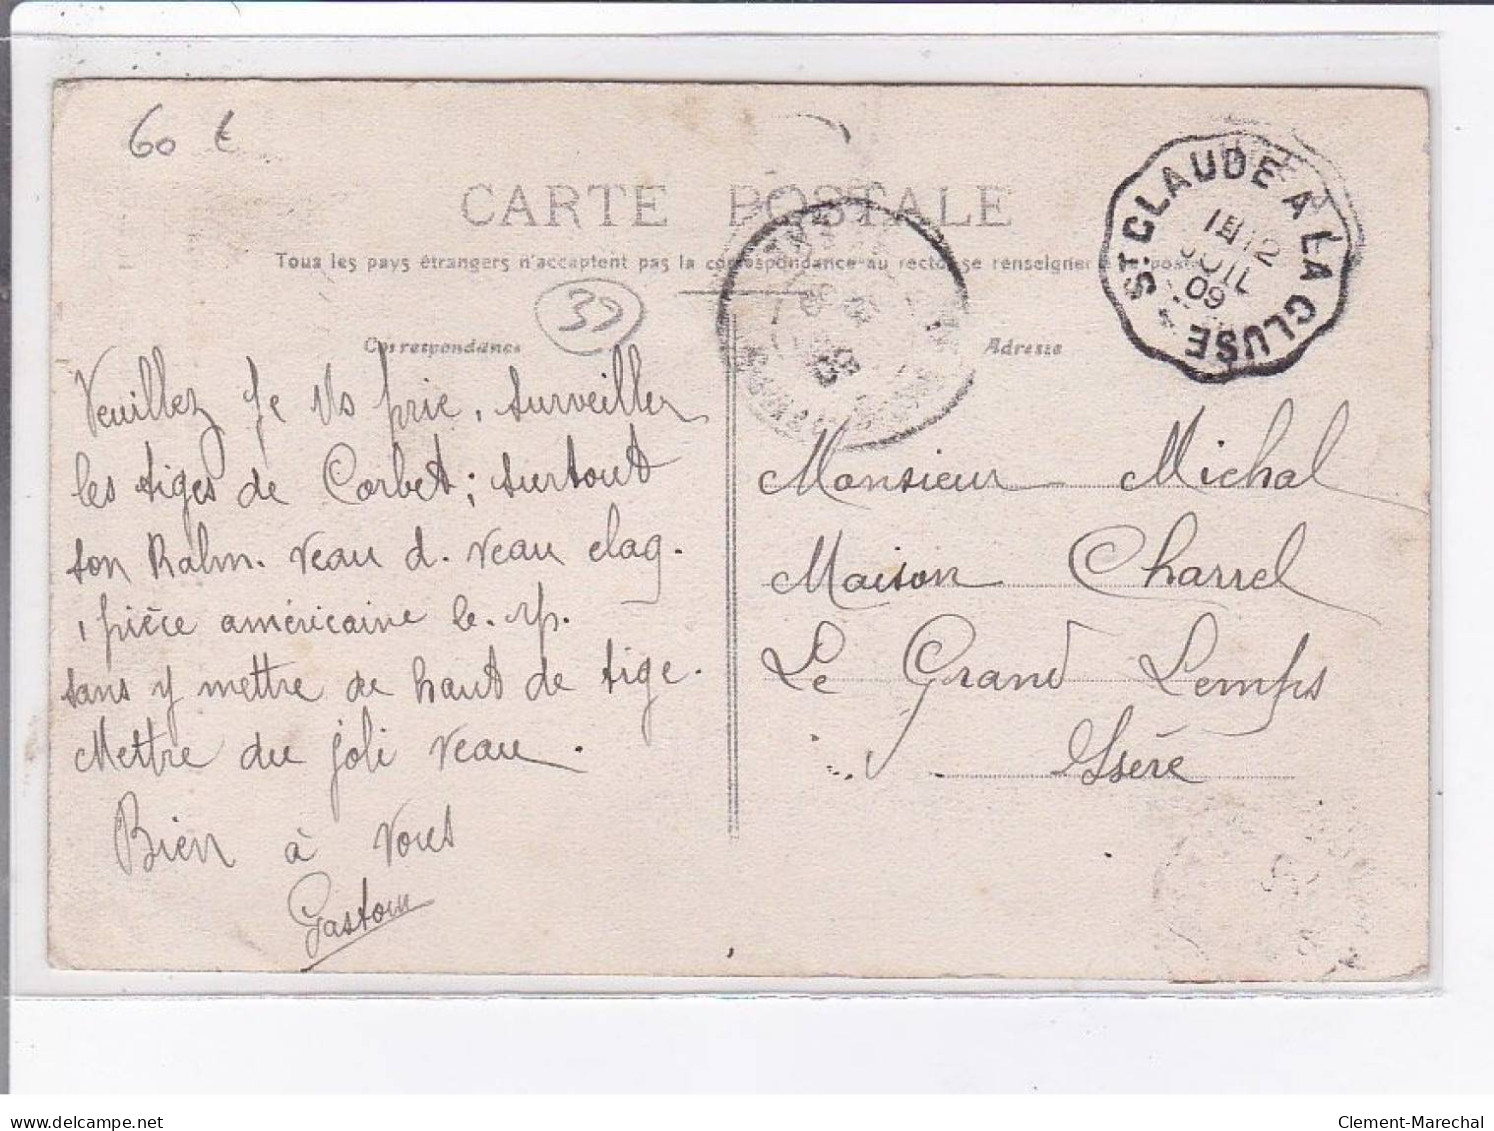 60 €
CARTE POSTALE
Tous les pays étrangers n'acceptent pas la correspondance au recto se renseigner à la poste
37
Correspondance
Adresse
ST CLAUDE A LA GLUSE
12
JUIL
09
09
Veuillez Je Vs prie, surveiller
les tiges de Corbet; surtout
son veau d. veau elag.
1 pièce américaine le. rp.
sans y mettre de haut de tige.
Mettre du joli veau.
Bien à vous
Gaston
Monsieur Michal
Maison Charrel
Le Grand Lemps
Isère
www.delcampe.net
Clement-Marechal